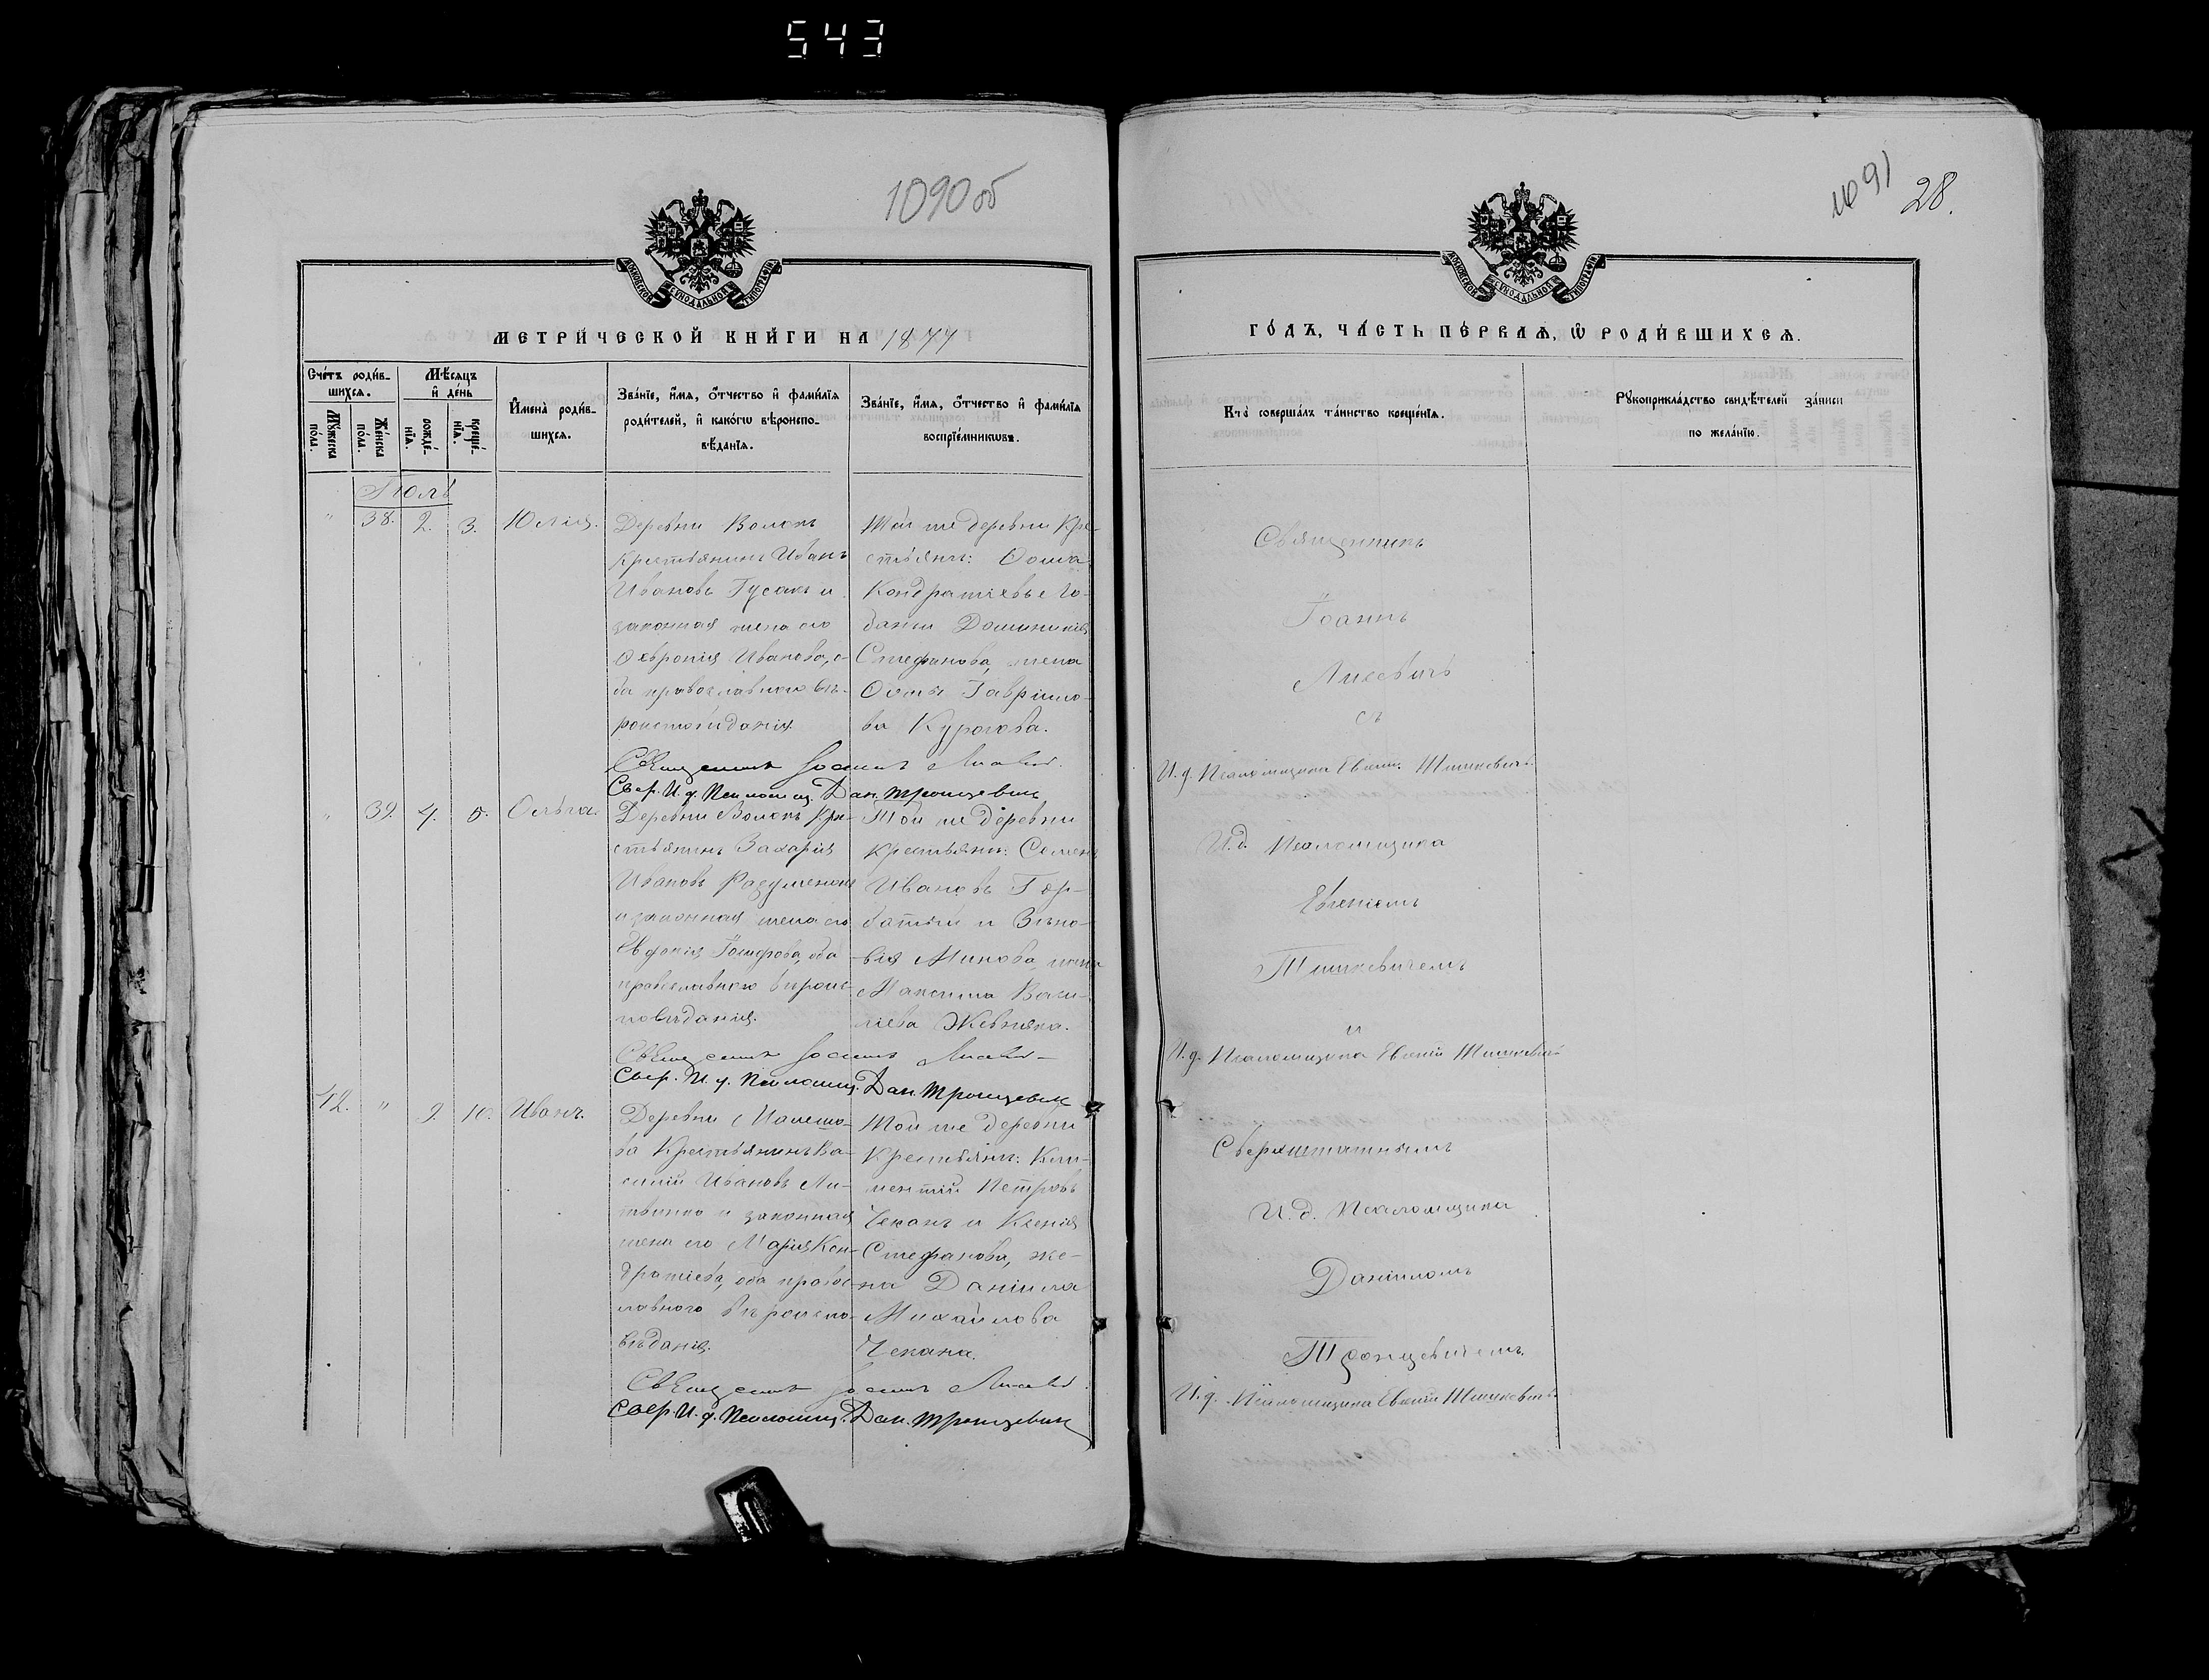 543
1090 об
МОСКОВСКОЙ СѴНОДАЛЬНОЙ ТИПОГРАФІИ
МЕТРИ́ЧЕСКОЙ КНИ́ГИ НА 1877
Счéтъ роди́в-
шихся.
Мꙋ́жеска пóла.
Жéнска пóла.
Мѣ́сяцъ
и҆ дéнь
рождé-
нїѧ.
крещé-
нїѧ.
И҆менà роди́в-
шихся.
Звáнїе, и҆́мя, ѻ҆́тчество и҆ фами́лїя
роди́телей, и҆ какóгѡ вѣроиспо-
вѣ́данїя.
Звáнїе, и҆́мя, ѻ҆́тчество и҆ фами́лїя
воспрїéмникѡвъ.
Іюль
" 38. 2. 3. Юлія.
Деревни Волокъ
Крестьянинъ Иванъ
Ивановъ Гусакъ и
законная жена его
Ѳевронія Иванова, о-
ба православнаго вѣ-
роисповѣданія.
Той же деревни Кре-
стьянъ: Ѳома
Стефанова, жена
Ѳомы Гавріило-
ва
Священникъ
Свер. И. д. Псаломщ. Дан. Тронцевичъ
" 39. 4. 5. Ольга.
Деревни Волокъ Кре-
стьянинъ Захарія
Ивановъ
и законная жена его
Евдокія Іосифова, оба
православнаго вѣроис-
повѣданія.
Той же деревни
крестьяны: Семенъ
Ивановъ Гор-
батый и Зѣно-
вія Минова, жена
Максима Васи-
лієва Жевняка.
Священникъ
Свер. И. д. Псаломщ. Дан. Тронцевичъ
42. " 9. 10. Иванъ.
Деревни
ва Крестьянинъ Ва-
силій Ивановъ Ли-
твинко и законная
жена его Марія Кон-
дратіева, оба правос-
лавнаго вѣроиспо-
вѣданія.
Той же деревни
Крестьяны: Кли-
ментій Петровъ
Чеканъ и Ксенія
Стефанова, же-
на Даніила
Михайлова
Чекана.
Священникъ
Свер. И. д. Псаломщ. Дан. Тронцевичъ
1091
28.
МОСКОВСКОЙ СѴНОДАЛЬНОЙ ТИПОГРАФІИ
ГÓДЪ, ЧÁСТЬ ПÉРВАѦ, Ѡ҆ РОДИ́ВШИХСѦ.
Ктò совершáлъ тáинство крещéнїя.
Рꙋкоприклáдство свидѣ́телей зáписи
по желáнїю.
Священникъ
Іоаннъ
Лисевичъ
съ
И. д. Псаломщика Евгеній Тишкевичъ
И. д. Псаломщика
Евгеніемъ
Тишкевичемъ
и
И. д. Псаломщика Евгеній Тишкевичъ
Сверхштатнымъ
И. д. Псаломщика
Даніиломъ
Тронцевичемъ.
И. д. Псаломщика Евгеній Тишкевичъ